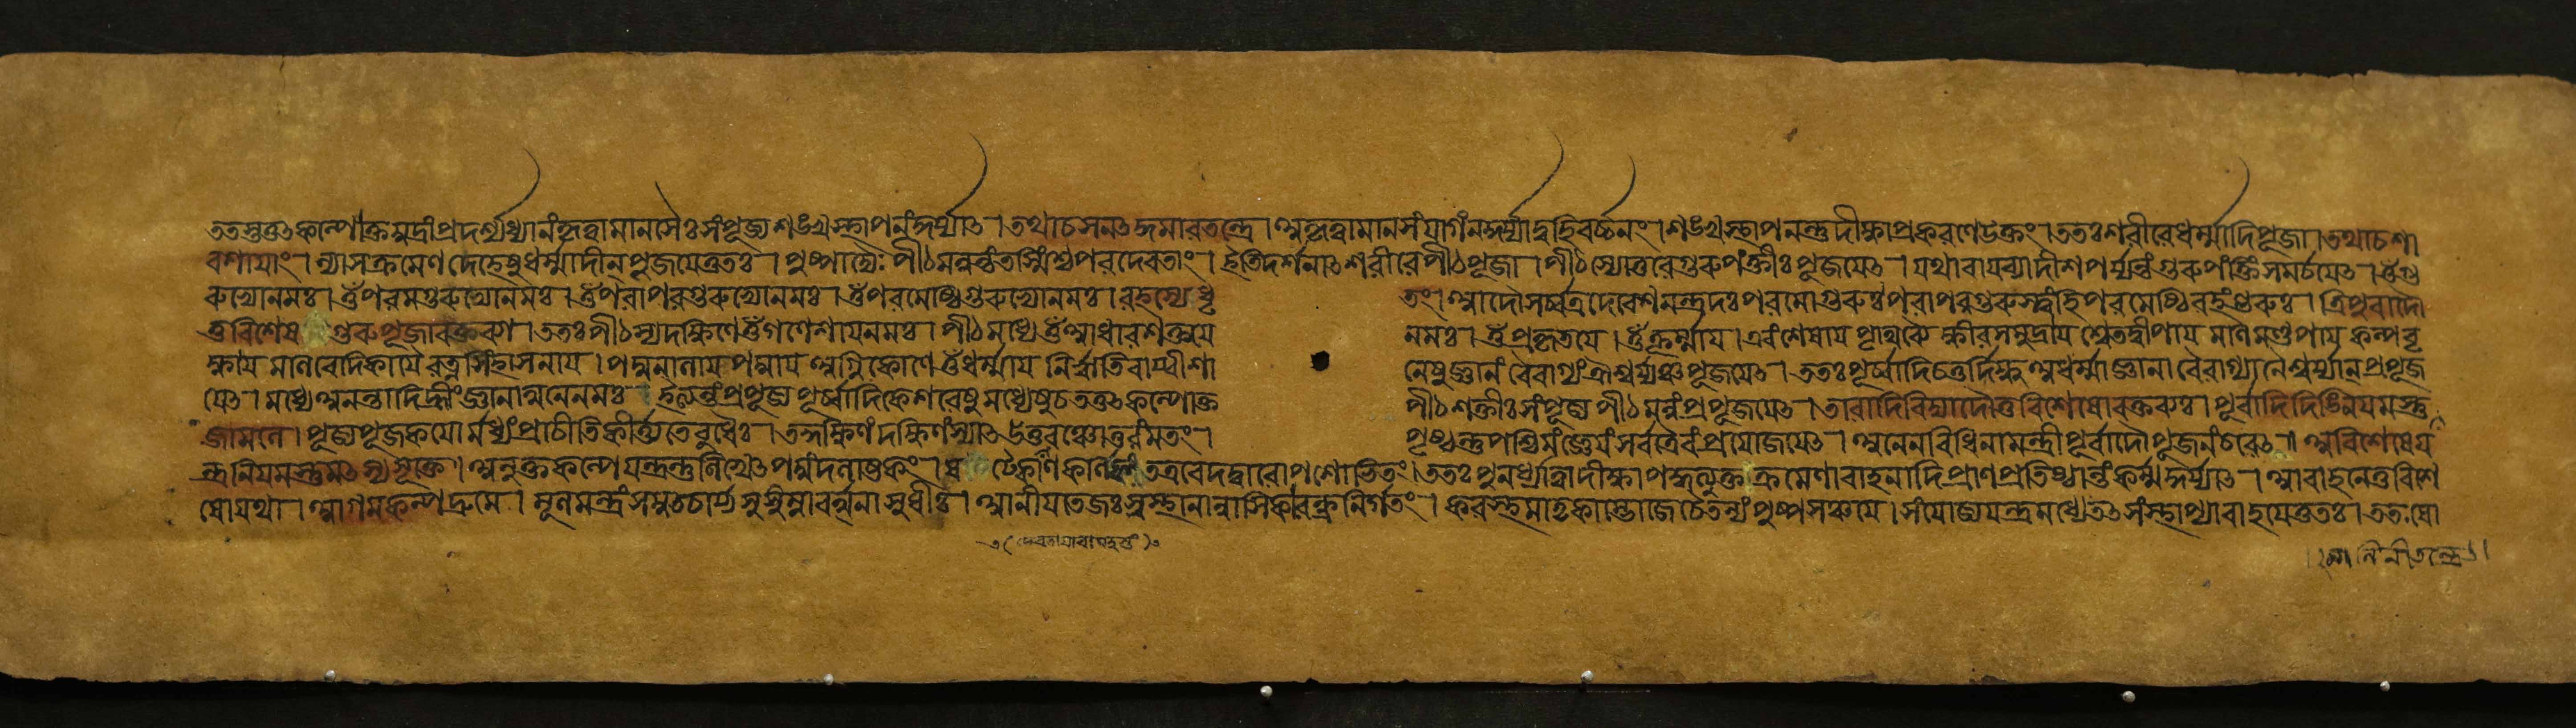 ততস্তত্তৎকল্পোক্তমুদ্রাং প্রদর্শ্য ধ্যানং কৃত্বা মানসৈঃ সংপূজ্য শঙ্খস্থাপনং কুর্য্যাৎ । তথাচ সনৎকুমারতন্ত্রে । অকৃত্বা মানসং যাগং ন কুর্য্যাদ্বহিরর্চ্চনং । শঙ্খস্থাপনন্তু দীক্ষাপ্রকরণে উক্তং । ততঃ শরীরে ধর্ম্মাদিপূজা । তথাচ শা
রদায়াং । ন্যাসক্রমেণ দেহেষু ধর্ম্মাদীন পূজয়েত্ততঃ । পুষ্পাদ্যৈঃ পীঠমন্বন্তং তস্মিংশ্চ পরদেবতাং । ইতি দর্শনাৎ শরীরে পীঠপূজা । পীঠস্যোত্তরে গুরুপংক্তীঃ পূজয়েৎ । যথা বায়ব্যাদীশপর্য্যন্তং গুরুপংক্তিং সমর্চয়েৎ । ওঁ গু
রুভ্যো নমঃ । ওঁ পরমগুরুভ্যো নমঃ । ওঁ পরাপরগুরুভ্যো নমঃ । ওঁ পরমেষ্ঠিগুরুভ্যো নমঃ । তং । আদৌ সর্ব্বত্র দেবেশ মন্ত্রদঃ পরমো গুরুঃ পরাপরগুরুস্ত্বং হি পরমেষ্ঠিরহং গুরুঃ । ত্রিপুরাদৌ
তু বিশেষ গুরুপূজা । ততঃ পীঠস্য দক্ষিণে ওঁ গণেশায় নমঃ । পীঠমধ্যে ওঁ আধারশক্তয়ে নমঃ । ওঁ প্রকৃতয়ে । ওঁ কূর্ম্মায় । এবং শেষায় পৃথিব্যৈ ক্ষীরসমুদ্রায় শ্বেতদ্বীপায় মণিমণ্ডপায় কল্পবৃ
ক্ষায় মণিবেদিকায়ৈ রত্নসিংহাসনায় । পদ্মনালায় পদ্মায় অগ্নিকোণে ওঁ ধর্ম্মায় নির্ঋতিবায়্বীশা নেষু জ্ঞানং বৈরাগ্যং ঐশ্বর্য্যঞ্চ পূজয়েৎ । ততঃ পূর্ব্বাদিচতুর্দিক্ষু অধর্ম্মাজ্ঞানাবৈরাগ্যানৈশ্বর্য্যান প্রপূজ
য়েৎ । মধ্যে অনন্তাদি হ্রীং জ্ঞানাত্মনে নমঃ প্রপূজ্য পূর্ব্বাদিকেশরেষু মধ্যেষু চ তত্তৎকল্পোক্ত পীঠশক্তীঃ সংপূজ্য পীঠমন্বং প্রপূজয়েৎ । তারাদিবিদ্যাদৌ তু বিশেষো বক্তব্যঃ । পূর্বাদিদিঙ্নিয়মস্তু
জামলে । পূজ্যপূজকয়োর্মধ্যং প্রাচীতি কীর্ত্ত্যতে বুধৈঃ । তদ্দক্ষিণং দক্ষিণং স্যাৎ উত্তরঞ্চোত্তরং মতং । পৃষ্ঠন্তু পশ্চিমং জ্ঞেয়ং সর্বত্রৈবং প্রয়োজয়েৎ । অনেন বিধিনা মন্ত্রী পূর্বাদৌ পূজনং চরেৎ ॥ অবিশেষে য
ন্ত্রনিয়মস্তু । অনুক্তকল্পে যন্ত্রন্তু লিখেৎ পদ্মং দলাষ্টকং । তত্র বেদদ্বারোপশোভিতং । ততঃ পুনর্ধ্যাত্বা দীক্ষাপদ্ধত্যুক্তক্রমেণাবাহনাদি প্রাণপ্রতিষ্ঠান্তং কর্ম্ম কুর্য্যাৎ । আবাহনে তু বিশে
ষো যথা । আগমকল্পদ্রুমে । মূলমন্ত্রং সমুচ্চার্য্য সুষুম্নাবর্ত্মনা সুধীঃ । আনীয় তেজঃ স্বস্থানান্নাসিকারন্ধ্রনির্গতং । করস্থমাতৃকাম্ভোজে চৈতন্যং পুষ্পসঞ্চয়ে । সংযোজ্য যন্ত্রমধ্যে তৎ সংস্থাপ্যাবাহয়েত্ততঃ ।